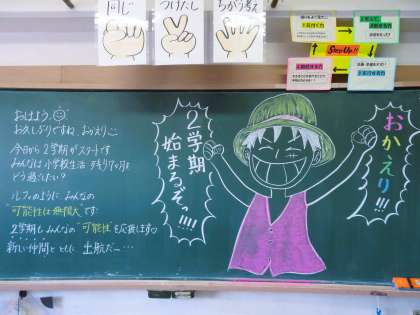 同じ
つけたし
ちがう考え
Step Up!!
おはよう。
お久しぶりですね。おかえり
今日から2学期がスタートです
みんなは小学校生活 残り7ヶ月を
どう過ごしたい?
ルフィのように みんなの
可能性は無限大です
2学期も みんなの"可能性"を応援します
新しい仲間と ともに 出航だー…
2学期
始まるぞっ!!!
おかえり!!!